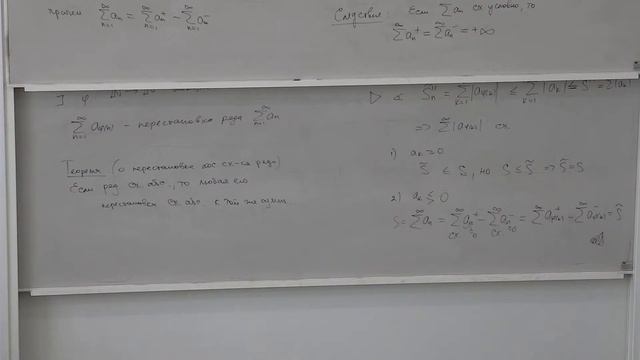 причем $\sum_{n=1}^{\infty} a_n = \sum_{n=1}^{\infty} a_n^+ - \sum_{n=1}^{\infty} a_n^-$
Следствие: Если $\sum a_n$ сх условно, то
$\sum^{\infty} a_n^+ = \sum^{\infty} a_n^- = +\infty$
$\sum_{n=1}^{\infty} a_{\varphi(n)}$ - перестановка ряда $\sum_{n=1}^{\infty} a_n$
Теорема (о перестановке абс сх-ся ряда)
Если ряд сх. абс., то любая его
перестановка сх абс к той же сумме
$\Rightarrow \sum^{\infty} |a_{\varphi(n)}|$ сх
1) $a_k \geq 0$
$\tilde{S} \leq S$, но $S \leq \tilde{S} \Rightarrow \tilde{S} = S$
2) $a_k \lessgtr 0$
$S = \sum^{\infty} a_n = \sum^{\infty} a_n^+ - \sum^{\infty} a_n^- = \sum^{\infty} a_{\varphi(n)}^+ - \sum^{\infty} a_{\varphi(n)}^- = \tilde{S}$